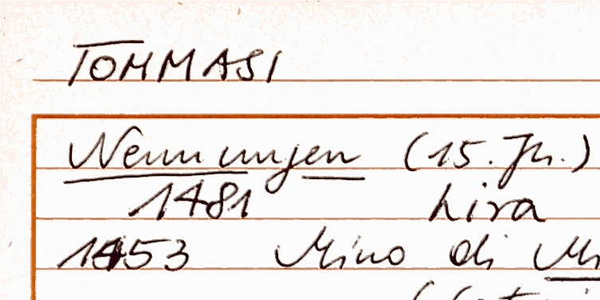 TOMMASI
Nennungen (15. Jh.)
1481 Lira
1453 Mino di